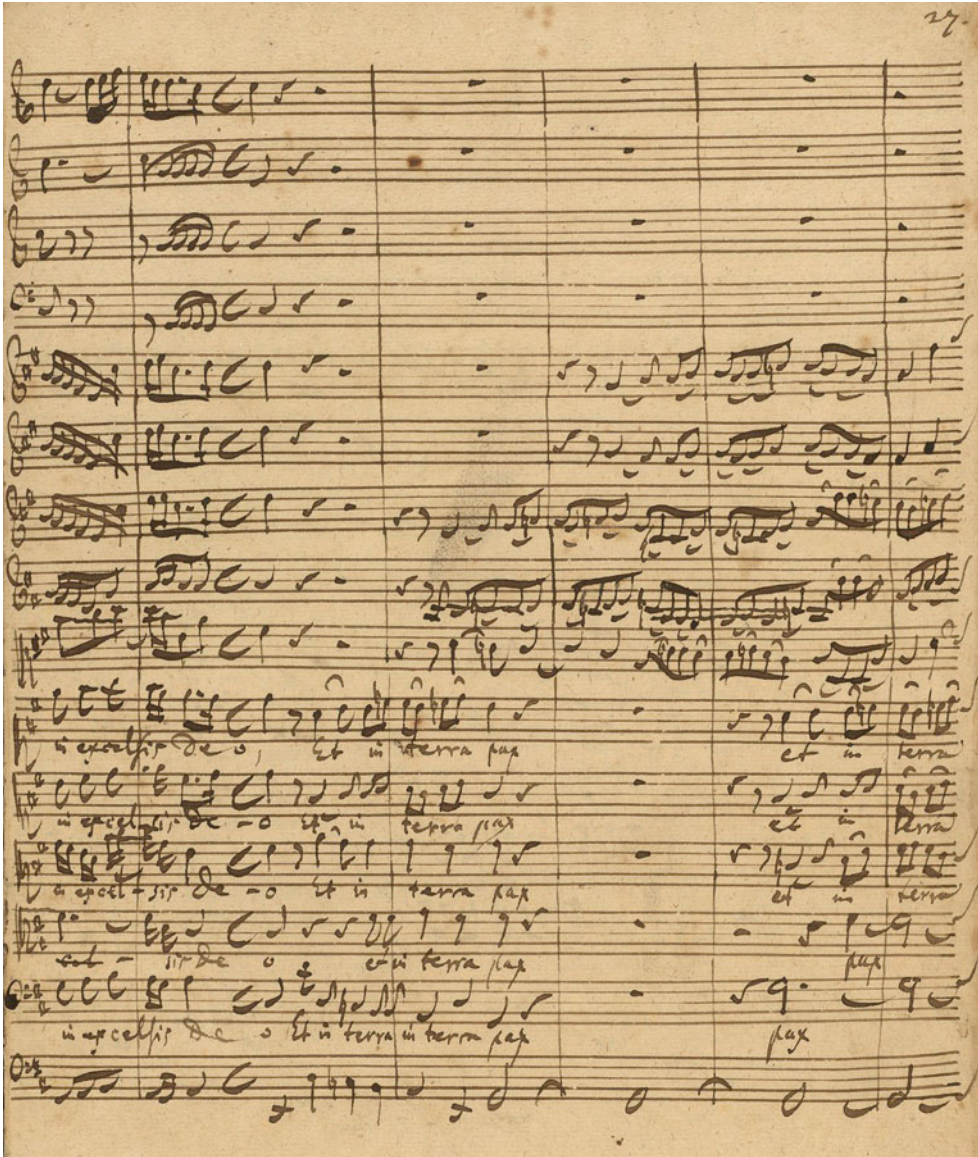 27.
in excelsis De o, Et in terra pax et in terra
in excel-sis de -o Et in terra pax et in terra
in excel-sis De -o Et in terra pax et in terra
cel - sis De o et in terra pax pax
in excelsis De o Et in terra in terra pax pax